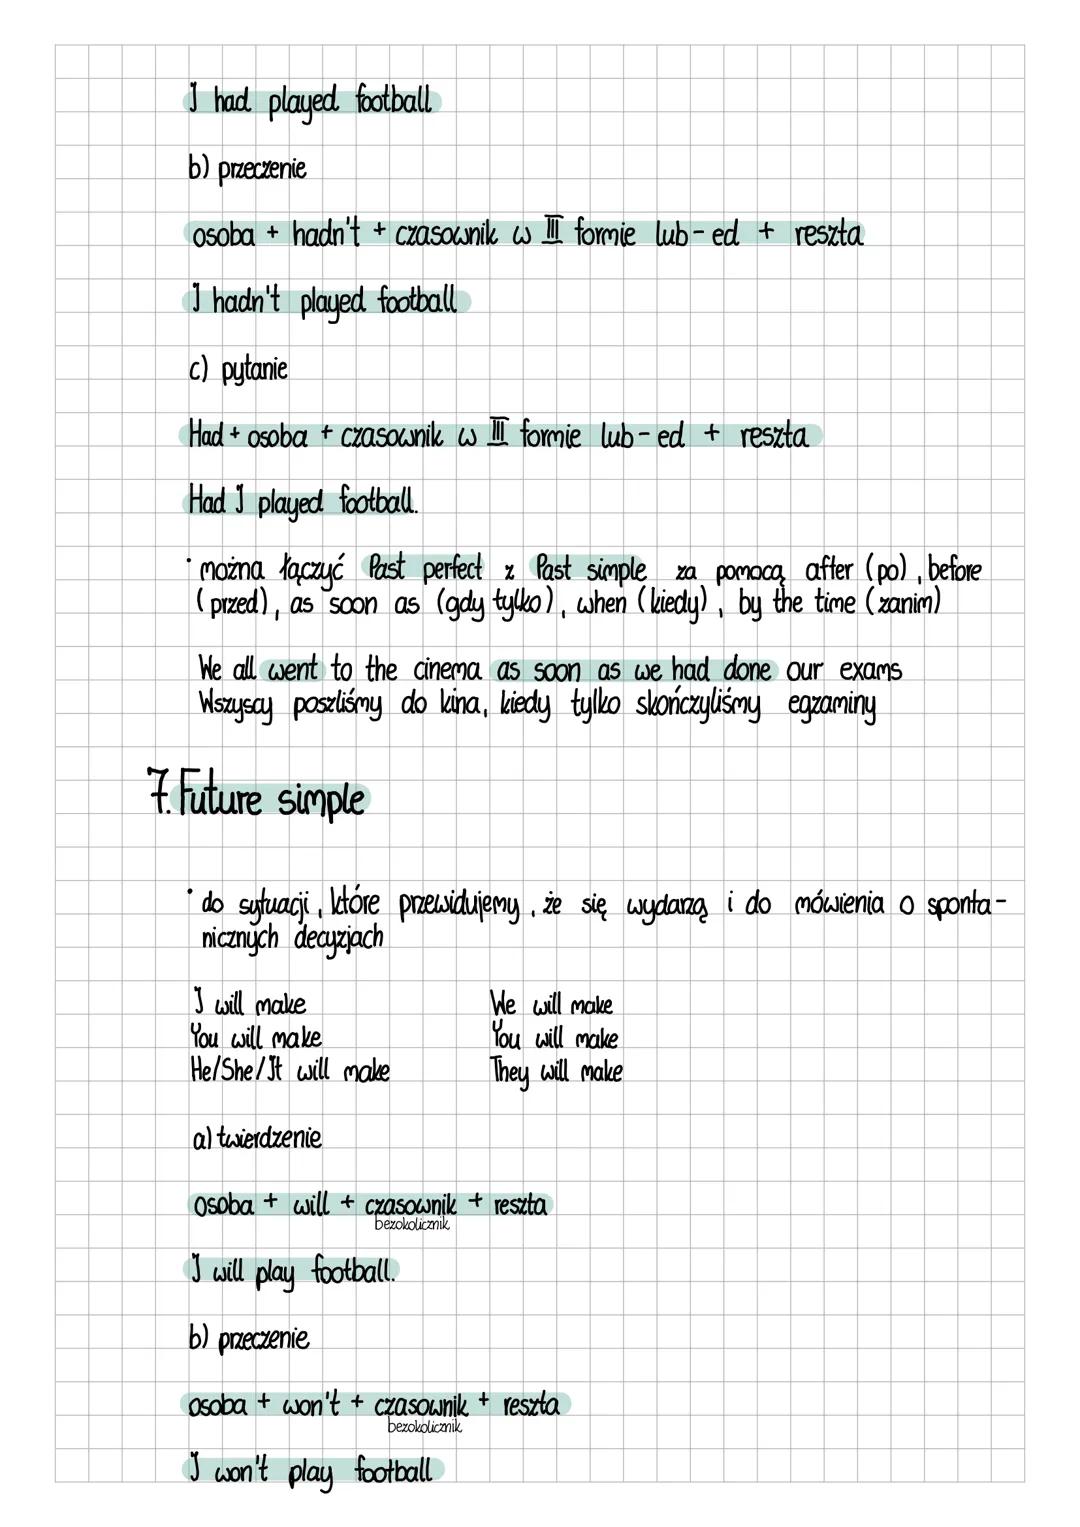 I had played football
b) przeczenie
osoba + hadn't + czasownik w III formie lub -ed + reszta
I hadn't played football
c) pytanie
Had + osoba + czasownik w III formie lub -ed + reszta
Had I played football.
• można łączyć Past perfect z Past simple za pomocą after (po), before
(przed), as soon as (gdy tylko), when (kiedy), by the time (zanim)
We all went to the cinema as soon as we had done our exams
Wszyscy poszliśmy do kina, kiedy tylko skończyliśmy egzaminy
7. Future simple
• do sytuacji, które przewidujemy, że się wydarzą i do mówienia o sponta-
nicznych decyzjach
I will make We will make
You will make You will make
He/She/It will make They will make
a) twierdzenie
osoba + will + czasownik + reszta
bezokolicznik
I will play football.
b) przeczenie
osoba + won't + czasownik + reszta
bezokolicznik
I won't play football